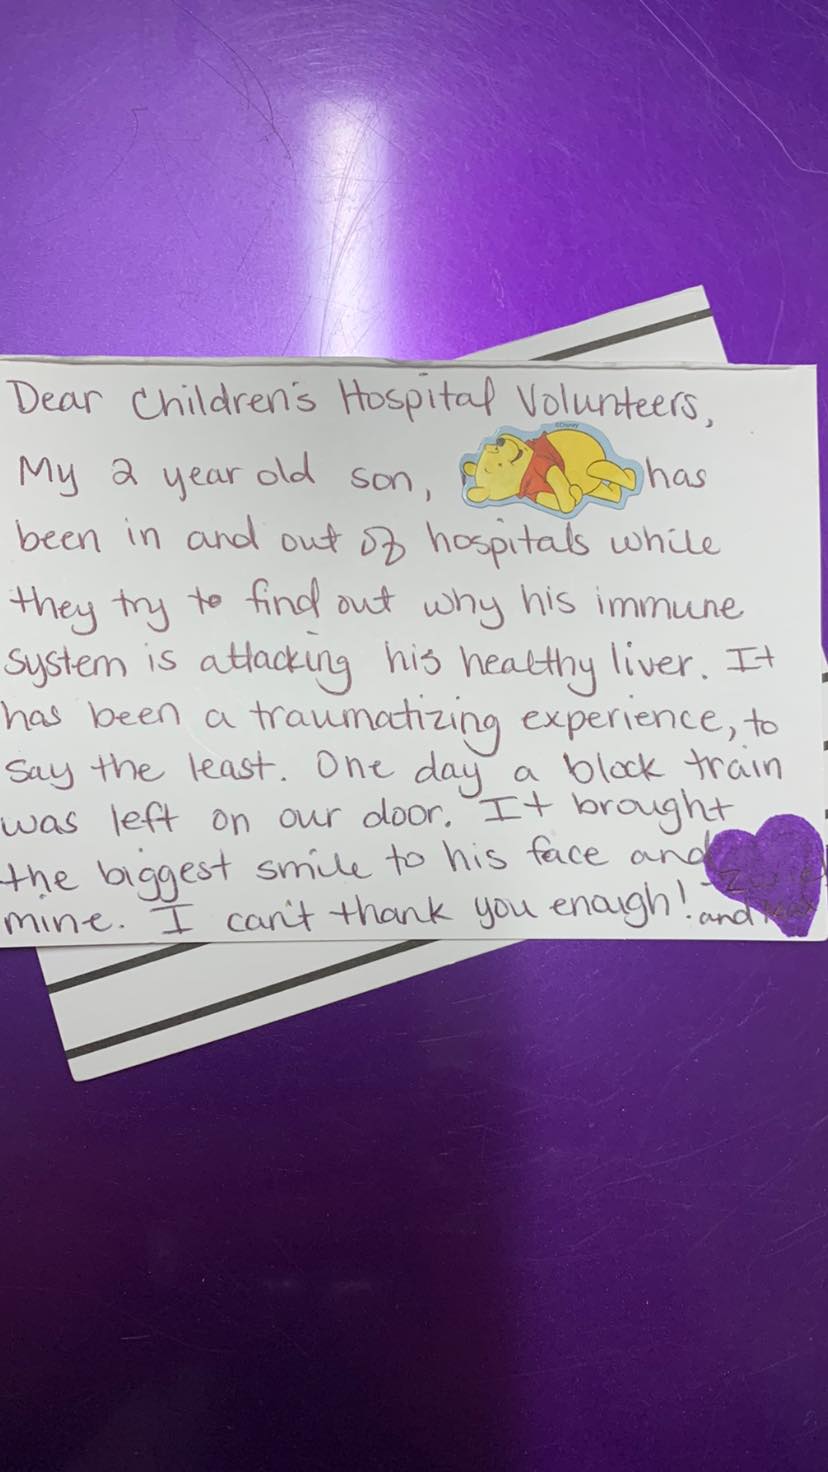 Dear Children's Hospital Volunteers,
©Disney
My 2 year old son, has
been in and out of hospitals while
they try to find out why his immune
system is attacking his healthy liver. It
has been a traumatizing experience, to
say the least. One day a block train
was left on our door. It brought
the biggest smile to his face and
mine. I can't thank you enough!
and